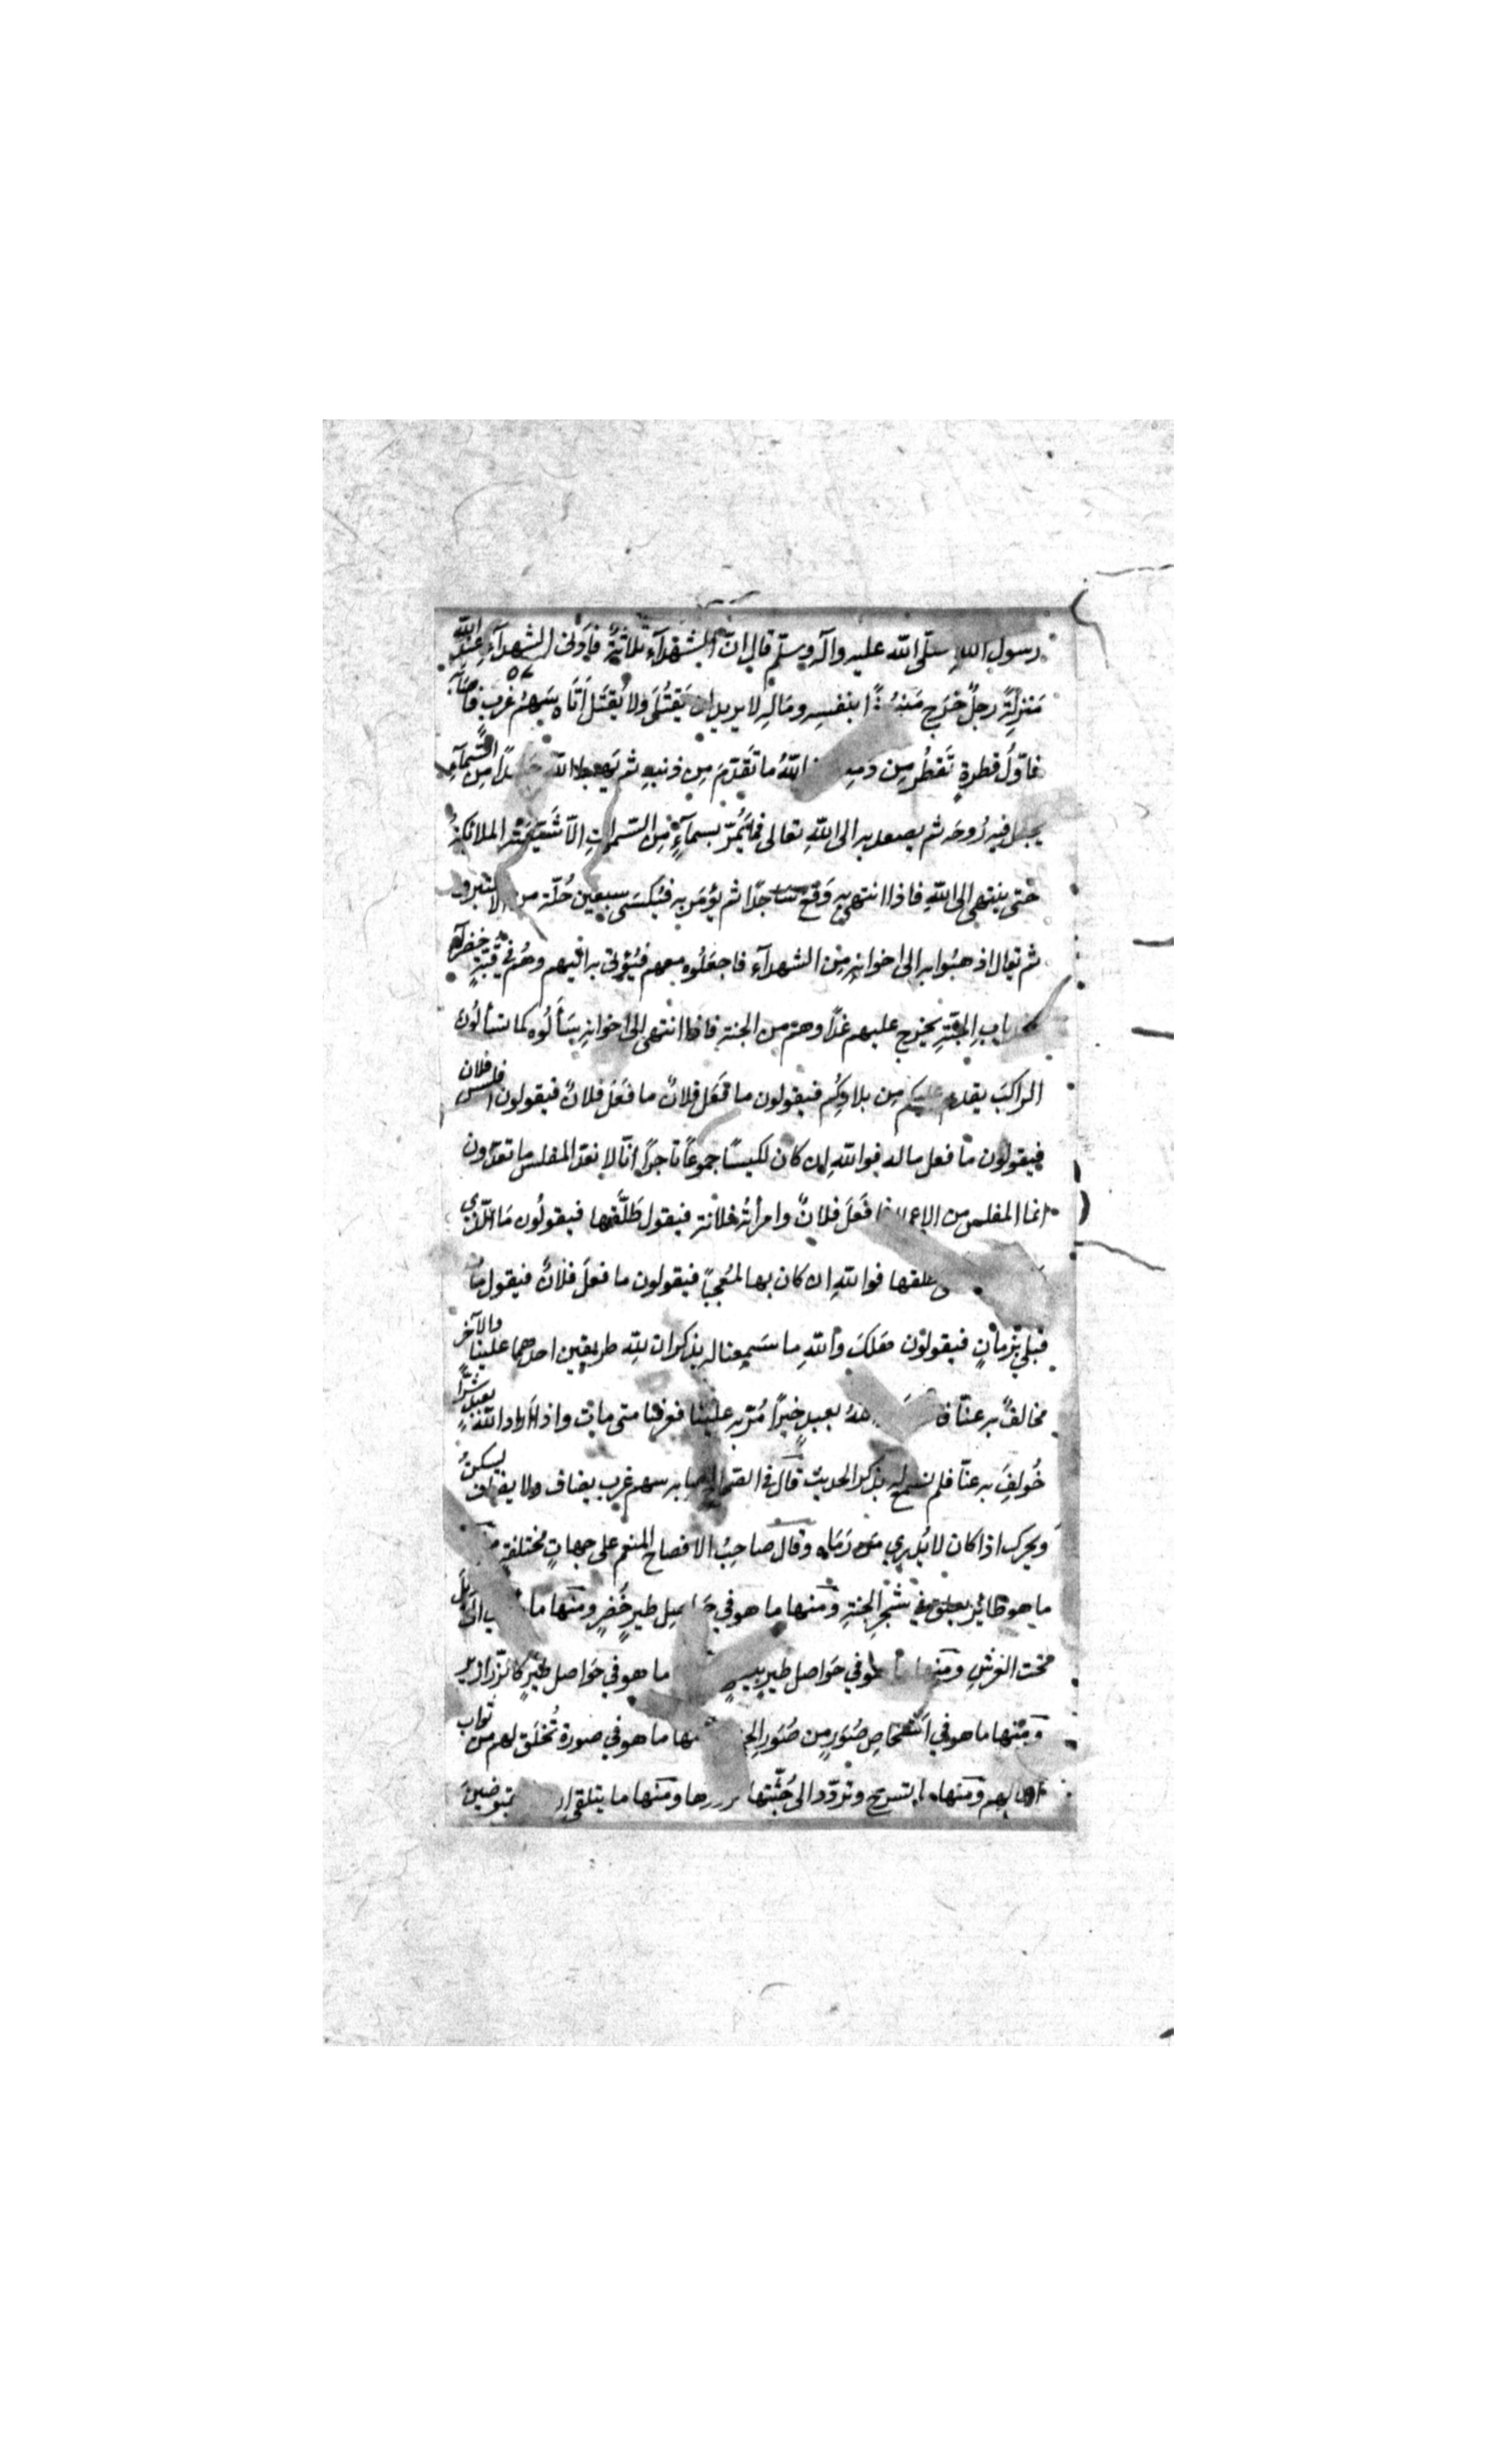 رسول الله صلّى الله عليه وآله وسلّم قال انّ الشهدآء ثلاثةٌ فاَدنى الشهدآء عند الله
مَنزِلةً رجلٌ خرَج بنفسِه ومَالِه لا يريد ان يَقتُل ولا يُقتَل اَتَاه سَهمُ غَربٍ فاَصَابَه
فاوّلُ قطرةٍ تَقطُر مِن دمِه الله ما تقدّمَ مِن ذنبهِ ثم يُهبط الله جَسَدًا مِن السَّمآءِ
يجعل فيه رُوحَه ثم يصعد به الى اللهِ تعالى فما يَمُرّ بسمآءٍ مِن السّمواتِ الاّ شَيّعَتْه الملائكةُ
حَتى ينتهي الى اللهِ فاذا انتهى به وَقعَ ساجدًا ثم يؤمَر به فيُكسَى سبعين حُلّة من الاستبرق
ثم يقال اذهبُوا به الى اخوانِه مِن الشهدآءِ فاجعَلُوه معهم فيُؤتى به اليهم وهُم في قُبّةٍ خضرآء
بابِ الجَنّةِ يخرج عليهم غدًا وهم من الجنة فاذا انتهى الى اخوانِه يسَأَلُوه كما تسألُون
الراكبَ يقدم عليكم مِن بلادِكُم فيقولون ما فَعَل فلانٌ ما فَعَل فلانٌ فيقولون افلس فلان
فيقولون ما فعل ماله فوالله ان كان لكيسًا جموعًا تاجرًا انّا لا نعدّ المفلس ما تعدّون
انما المفلس من الاعمال فَعَلَ فلانٌ وامرأتُه فلانة فيقول طَلّقها فيقولُون مَا الّذي
طلقها فواللهِ ان كان بها لمُعجَبًا فيقولون ما فعلَ فلانٌ فيقول ماتَ
قبلي بزمانٍ فيقولوُن هَلكَ واللهِ ما سَمِعنا له بذكر ان لله طريقين احدهما علينا والآخر
مخالفٌ به عنّا بعبدٍ خيرًا مُرّ به علينا فعرفنا متى مات واذا اراد الله بعبدٍ شرًّا
خُولِفَ به عنّا فلم نسمع له بذكر الحديث قال في اصابه سهم غرب يضاف ولا يضاف يسكن
ويحرك اذا كان لا يُدري مَن رَمَاه وقال صاحبُ الافصاح المنعم على جهاتٍ مختلفةٍ
ما هو طائرٌ يعلق في شَجَر الجنةِ ومنها ما هو في حَواصِل طيرٍ خُضرٍ ومنها ما
تحت العَرشِ ومنها ما هو في حَواصل طيرٍ بيضٍ ما هو في حَواصل طيرٍ كالزّرازير
ومنها ما هو في اَشخاصِ صُوَرٍ من صُوَرِ الجنة ما هو في صورةٍ تُخلَق لهم من ثواب
اعمالهم ومنها ما تسرح وتردّد الى جُثّتها تزورها ومنها ما يتلقى